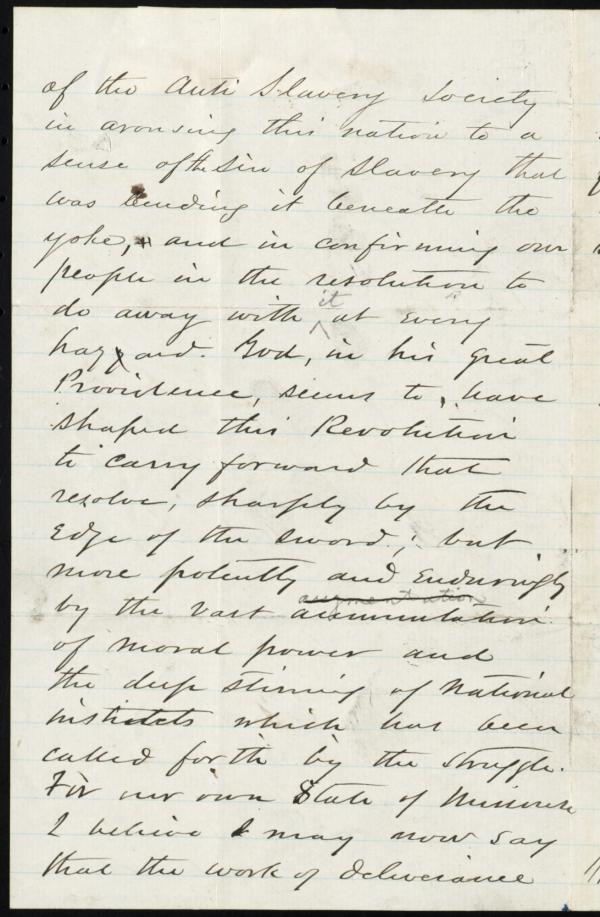 of the Anti Slavery Society
in arousing this nation to a
sense of the sin of Slavery that
was bending it beneath the
yoke, and in confirming our
people in the resolution to
do away with it at every
hazard. God, in his great
Providence, seems to have
shaped this Revolution
to carry forward that
resolve, sharply by the
edge of the sword; but
more potently and enduringly
augmentation
by the vast accumulation
of moral power and
the deep stirring of National
instincts which has been
called forth by the struggle.
For our own State of Missouri
I believe I may now say
that the work of deliverance